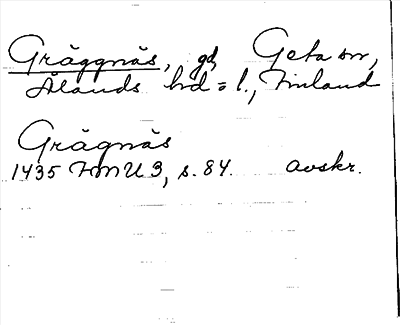 Gräggnäs, gd, Geta sn,
Ålands hd = l., Finland
Grägnäs
1435 FMU 3, s. 84. avskr.